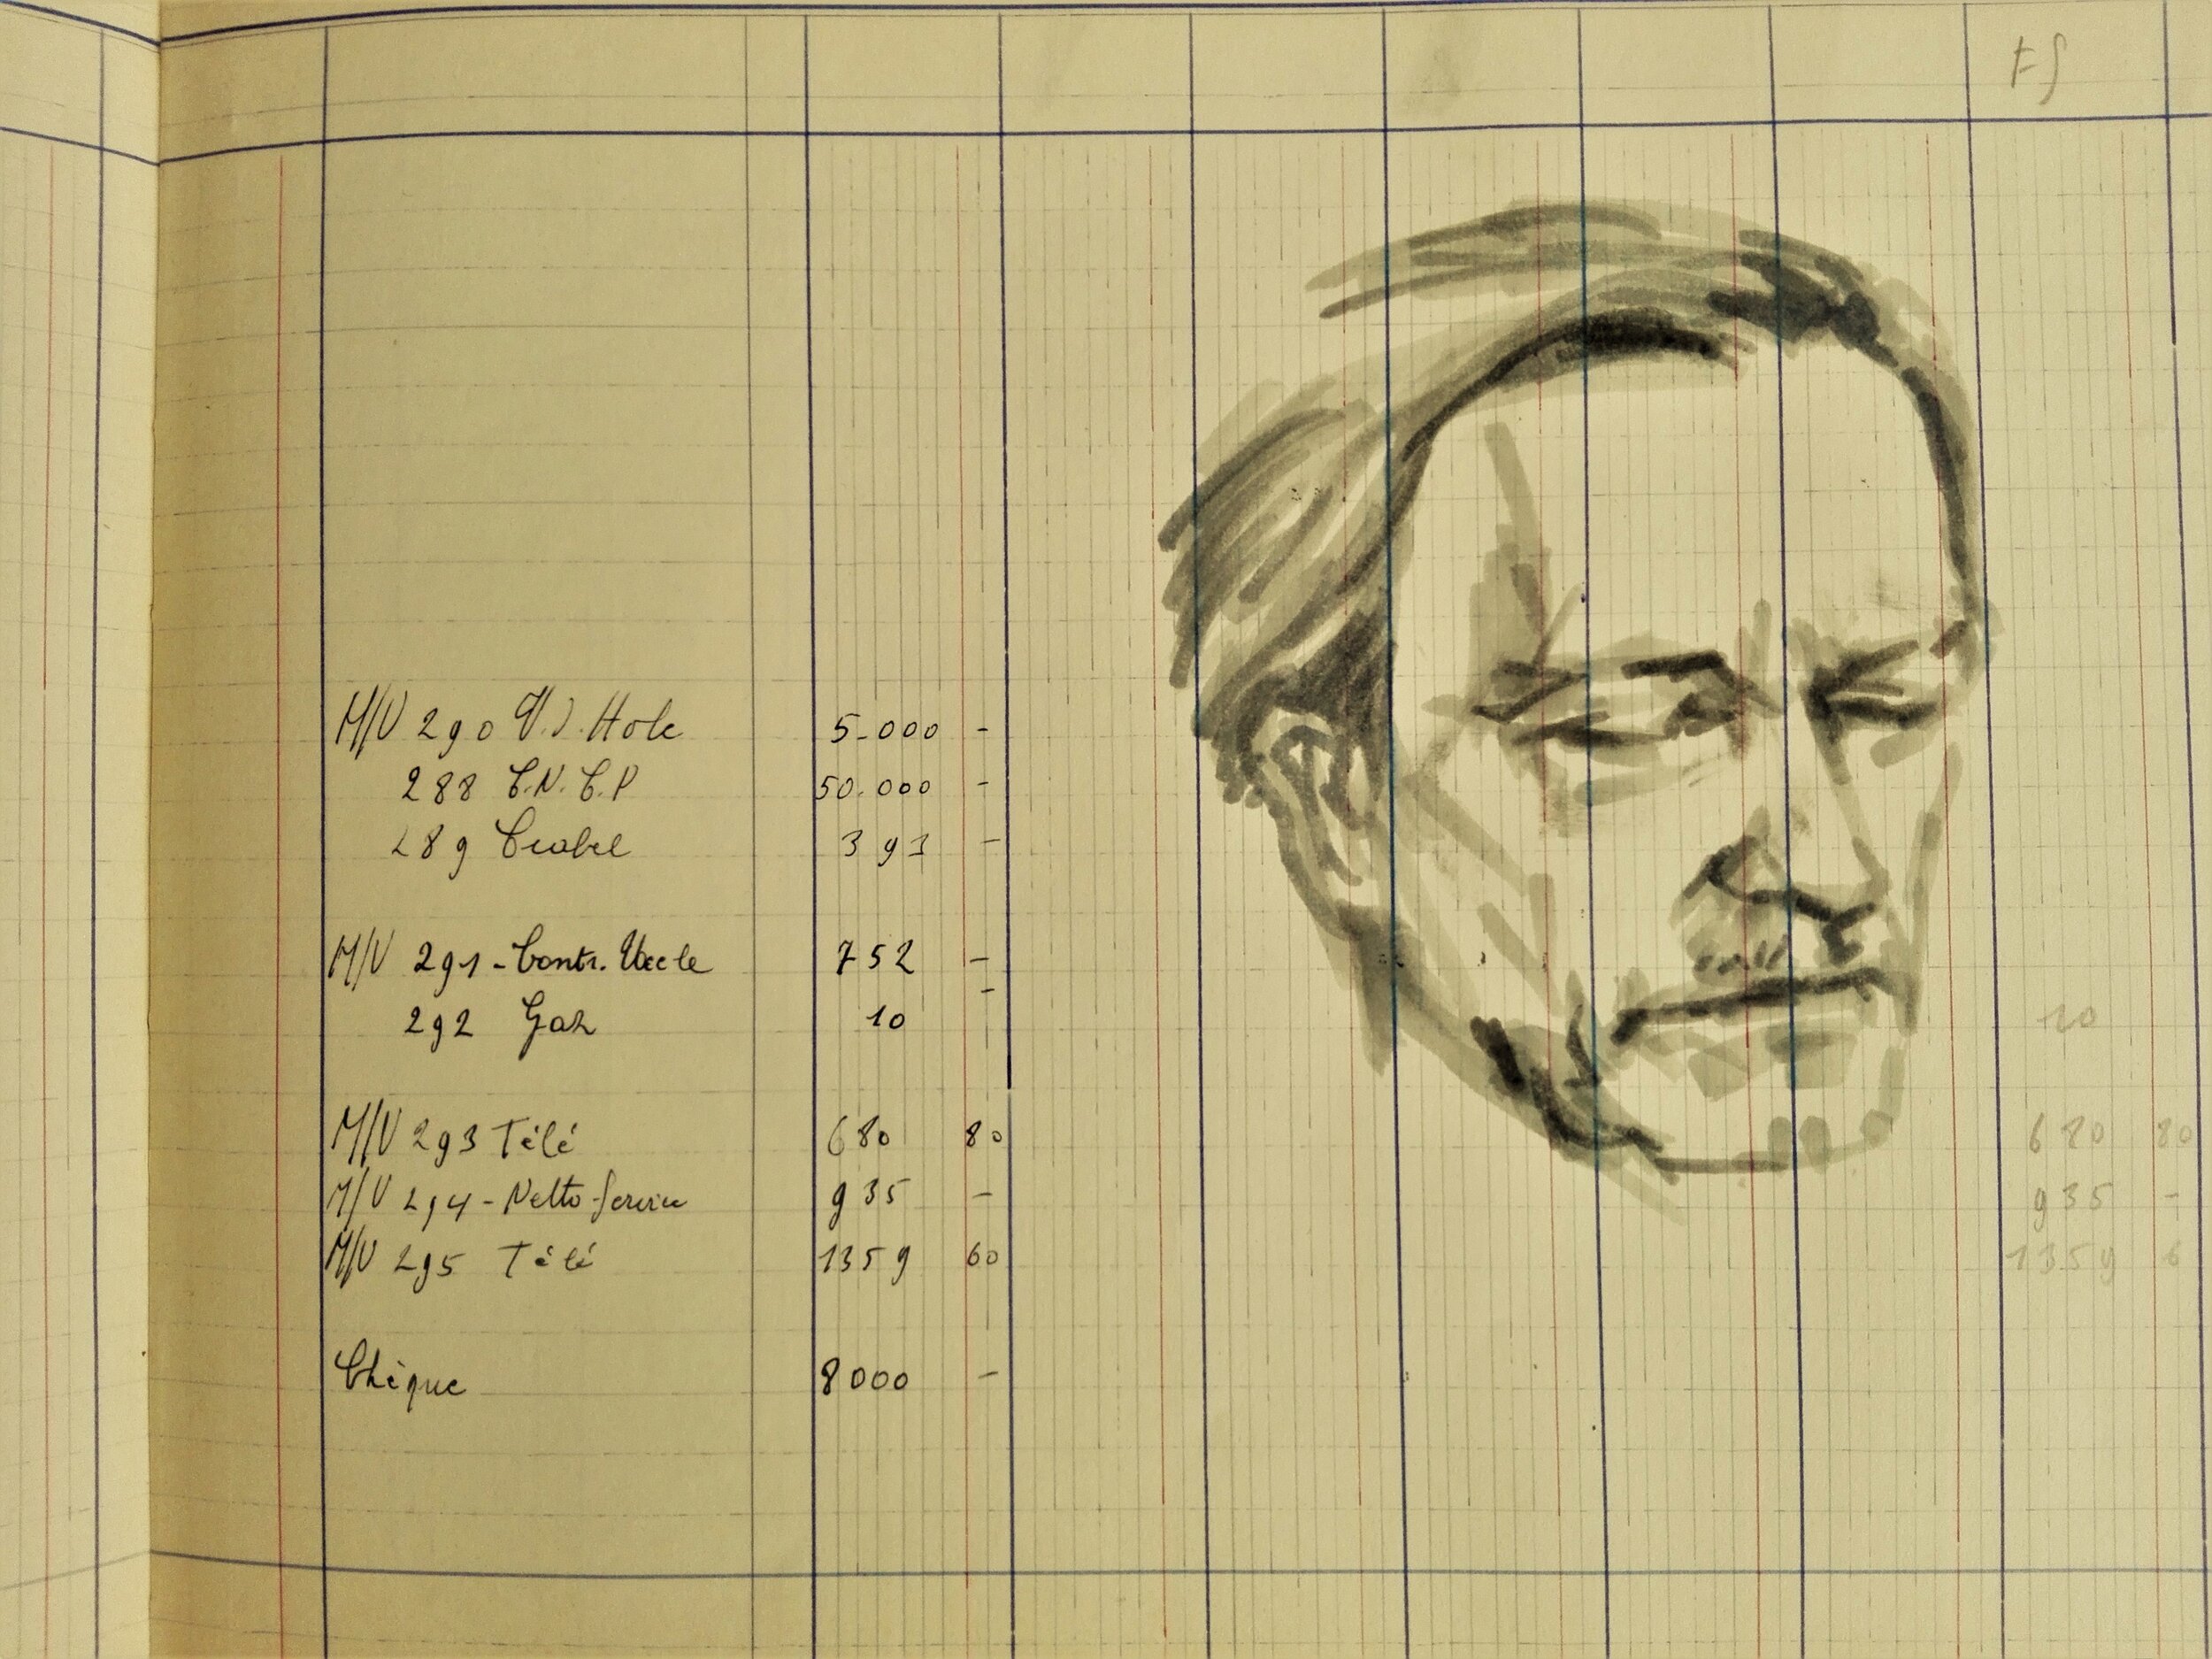 FS
M/V 290 V.J. Hole 5.000 -
288 C.N.C.P 50.000 -
289 393 -
M/V 291 - Contr. Uccle 752 -
292 Gaz 10 - 10
M/V 293 Télé 680 80 680 80
M/V 294 - Netto-Service 935 - 935 -
M/V 295 Télé 1359 60 1359 6
Chèque 8000 -